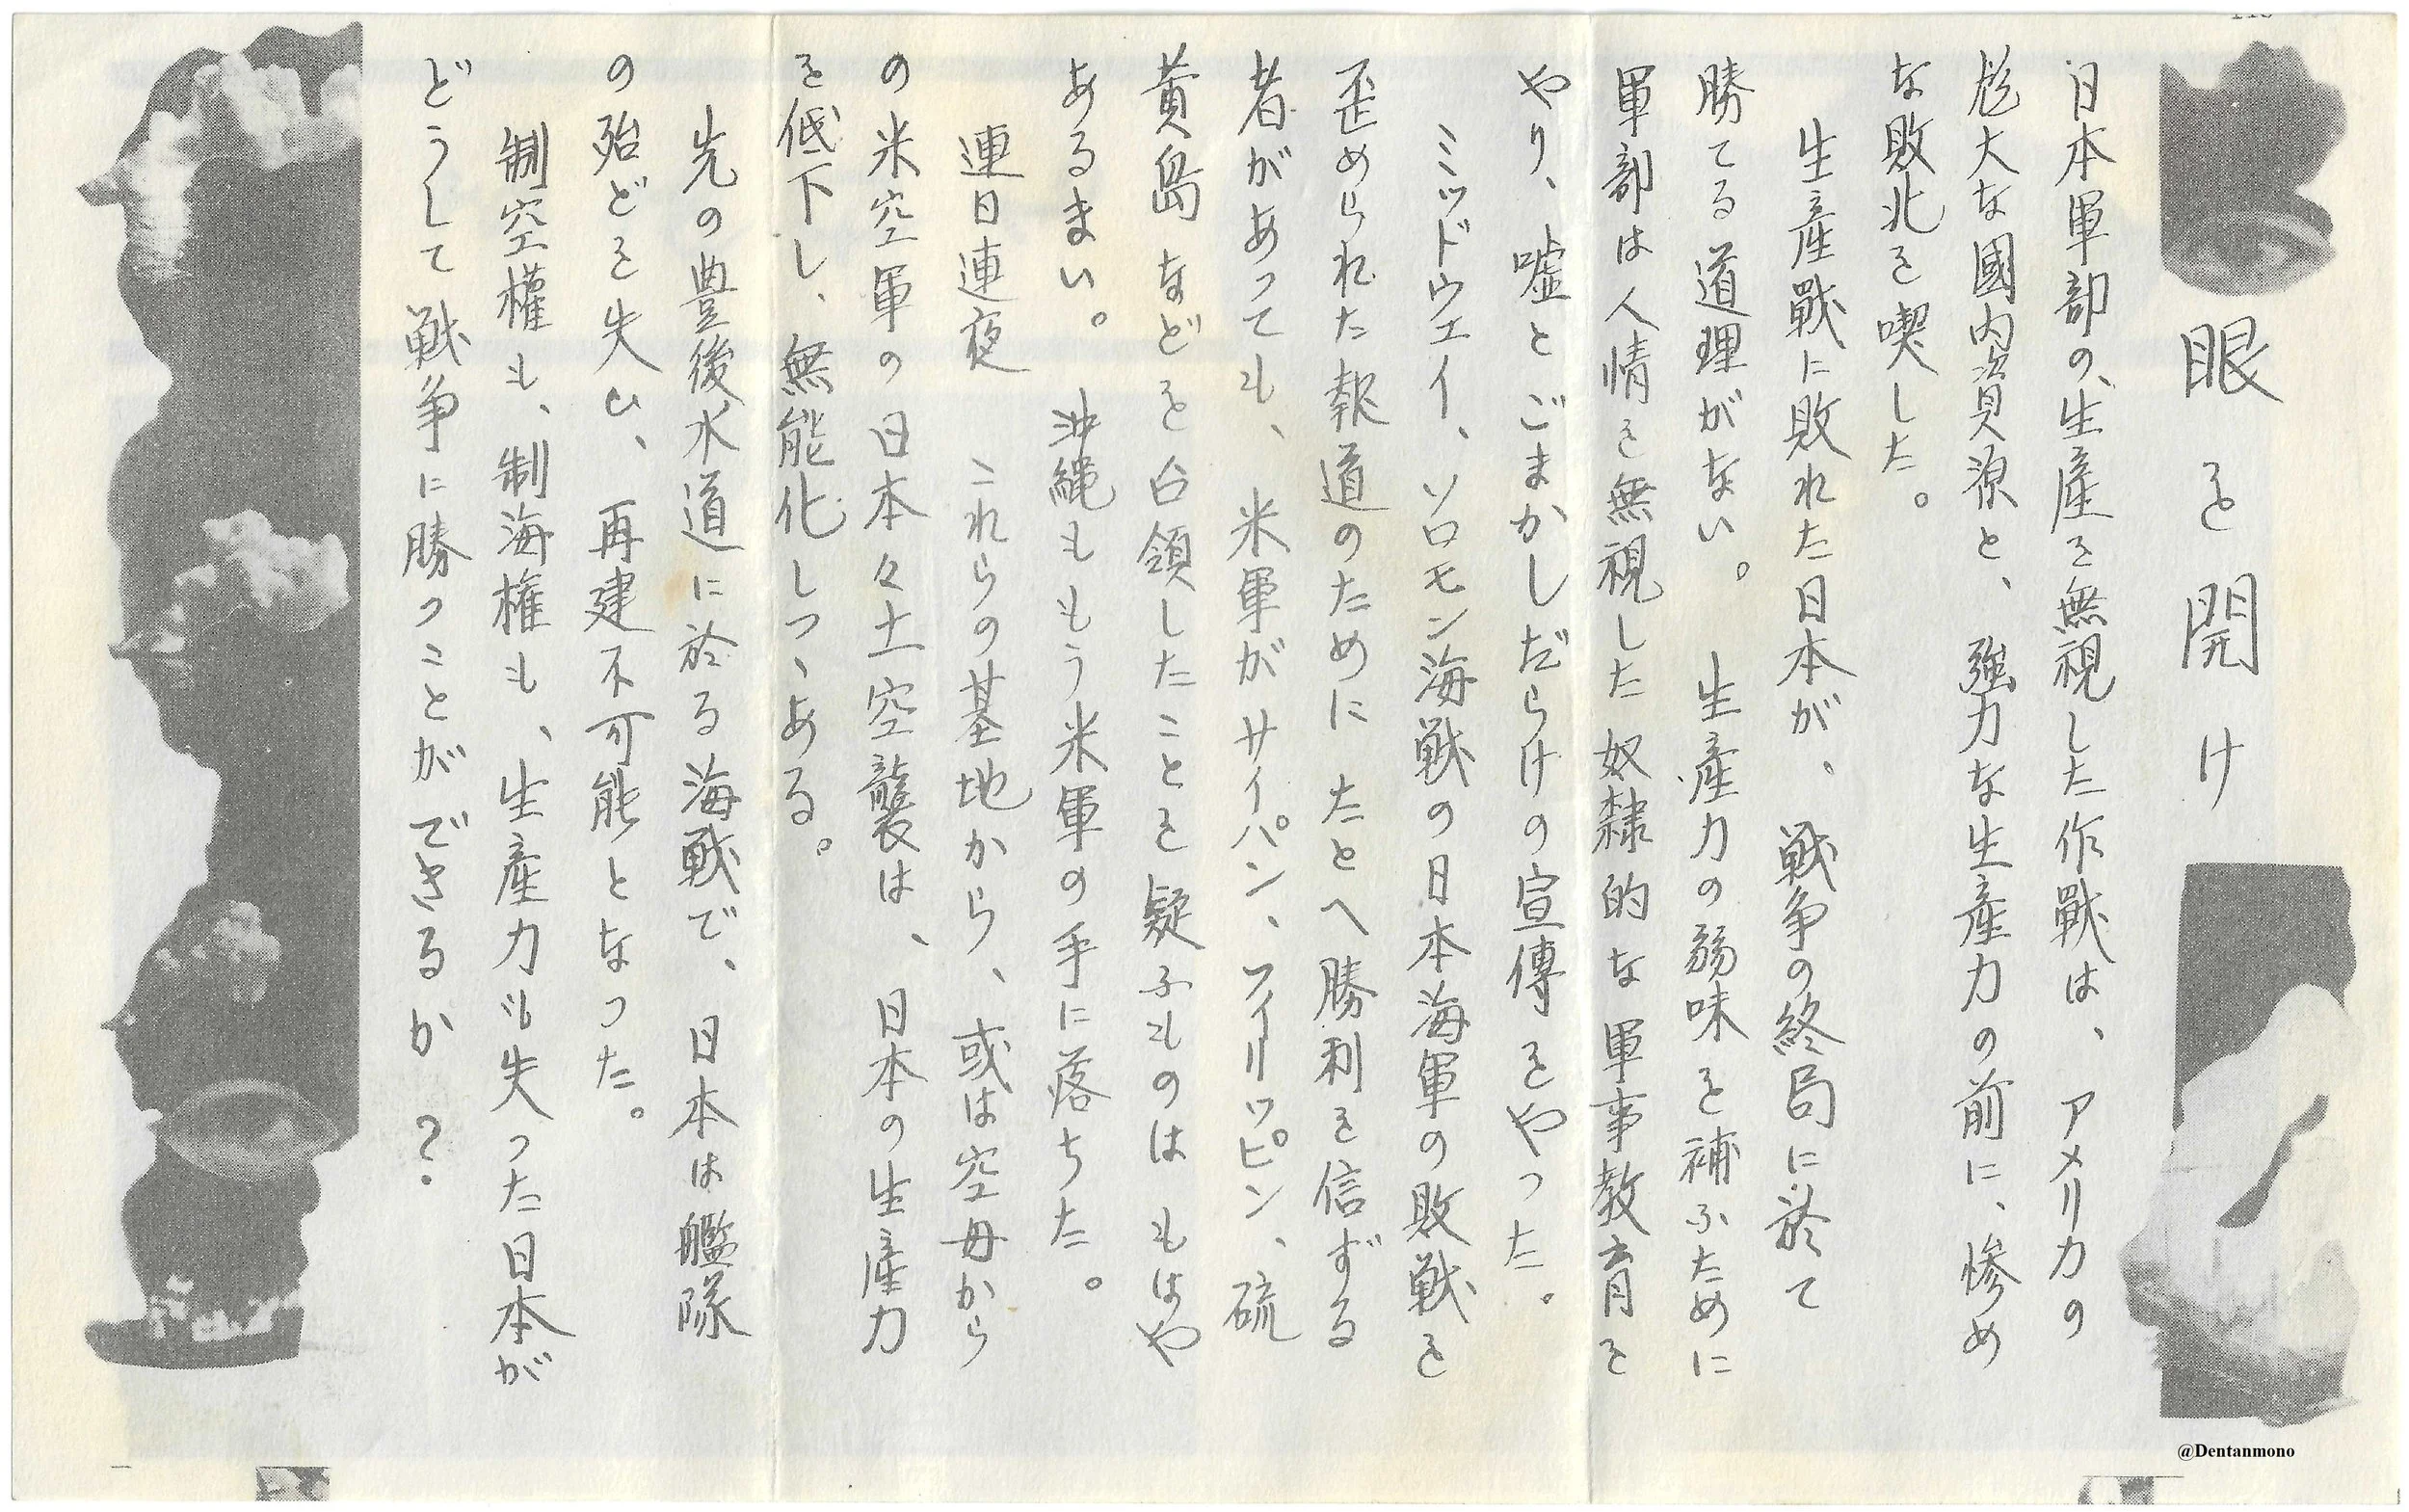 眼を開け
日本軍部の、生産を無視した作戰は、アメリカの
尨大な國内資源と、強力な生産力の前に、惨め
な敗北を喫した。
生産戰に敗れた日本が、戦争の終局に於て
勝てる道理がない。生産力の弱味を補ふために
軍部は人情を無視した奴隷的な軍事教育を
やり、嘘とごまかしだらけの宣傳をやった。
ミッドウェイ、ソロモン海戦の日本海軍の敗戦を
歪められた報道のためにたとへ勝利を信ずる
者があっても、米軍がサイパン、フイリッピン、硫
黄島などを占領したことを疑ふものはもはや
あるまい。沖縄ももう米軍の手に落ちた。
連日連夜これらの基地から、或は空母から
の米空軍の日本々土空襲は、日本の生産力
を低下し、無能化しつゝある。
先の豊後水道に於る海戦で、日本は艦隊
の殆どを失ひ、再建不可能となった。
制空權も、制海権も、生産力も失った日本が
どうして戦争に勝つことができるか？
@Dentanmono